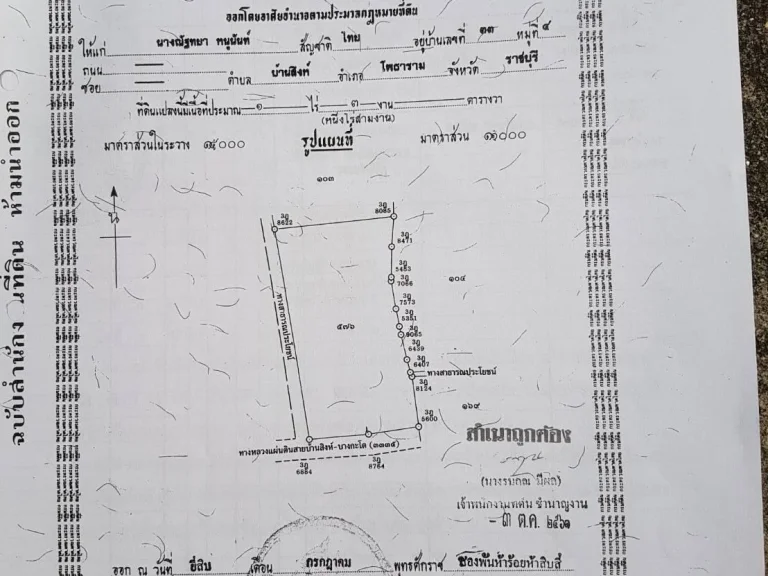 ออกโดยอาศัยอำนาจตามประมวลกฎหมายที่ดิน
ให้แก่ นางณัฐทยา หนูนันท์ สัญชาติ ไทย อยู่บ้านเลขที่ ๓๓ หมู่ที่ ๔
ถนน
ซอย ตำบล บ้านสิงห์ อำเภอ โพธาราม จังหวัด ราชบุรี
ที่ดินแปลงนี้มีเนื้อที่ประมาณ ๑ ไร่ ๓ งาน ตารางวา
(หนึ่งไร่สามงาน)
มาตราส่วนในระวาง รูปแผนที่ มาตราส่วน
๑๐๓
น
3ฎ
8622
3ฎ
8085
3ฎ
8471
3ฎ
5453
3ฎ
7066
๑๐๔
3ฎ
7573
3ฎ
5351
๕๗๖
3ฎ
3ฎ
6439
3ฎ
6407
ทางสาธารณประโยชน์
ทางสาธารณประโยชน์
3ฎ
8124
๑๖๙
3ฎ
5600
ทางหลวงแผ่นดินสายบ้านสิงห์-บางกะโด (๓๓๓๕)
3ฎ
6884
3ฎ
8764
สำเนาถูกต้อง
เจ้าพนักงานที่ดิน ชำนาญงาน
- ๓ ต.ค. ๒๕๖๑
ออก ณ วันที่ ยี่สิบ เดือน กรกฎาคม พุทธศักราช สองพันห้าร้อยห้าสิบสี่
ฉบับสำนักงานที่ดิน ห้ามนำออก